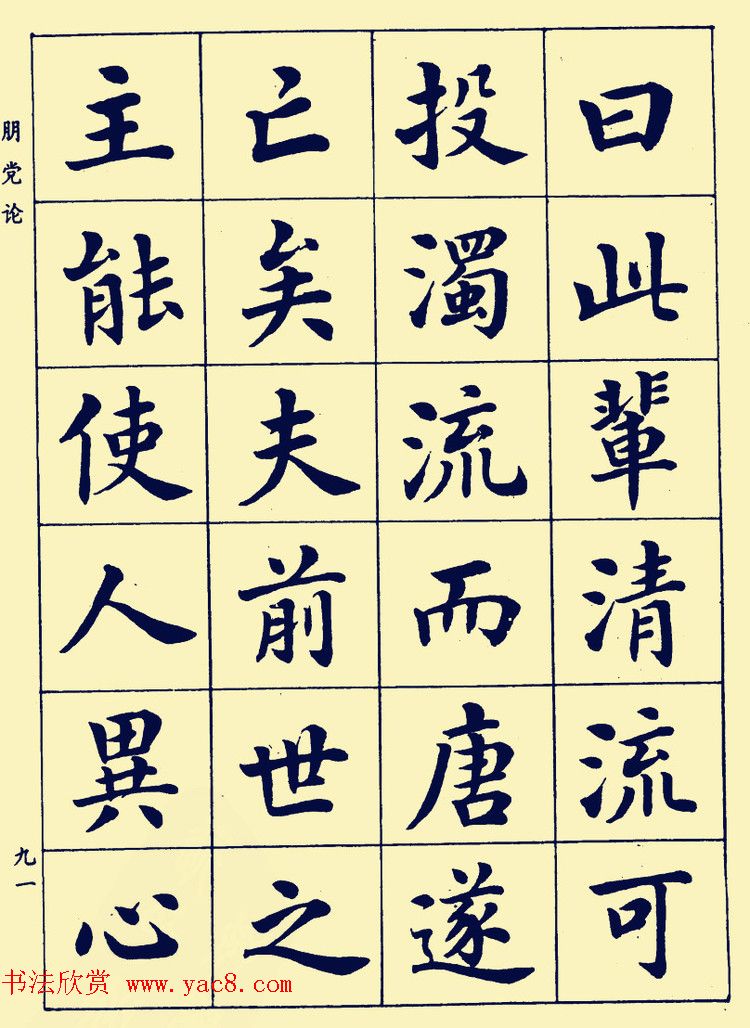 曰此輩清流可
投濁流而唐遂
亡矣夫前世之
主能使人異心
朋党论
九一
书法欣赏 www.yac8.com